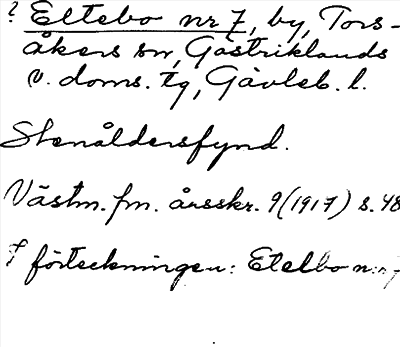 ? Eltebo nr 7, by, Tors-
åkers sn, Gästriklands
v. doms. tg, Gävleb. l.
Stenåldersfynd.
Västm. fm. årsskr. 9 (1917) s. 48
I förteckningen: Etelbo n:r 7